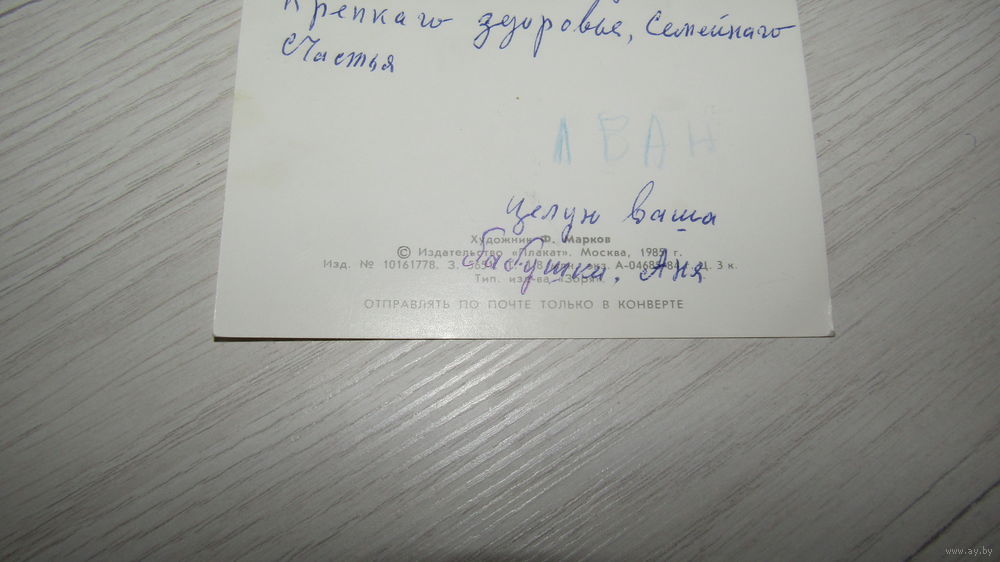 Крепкаго здоровья, Семейнаго
Счастья
ИВАН
целую ваша
бабушка. Аня
Художник Ф. Марков
© Издательство «Плакат». Москва, 1985 г.
Изд. № 10161778. З. А-04685. Ц. 3 к.
Тип. изд-ва «Заря».
ОТПРАВЛЯТЬ ПО ПОЧТЕ ТОЛЬКО В КОНВЕРТЕ
www.ay.by